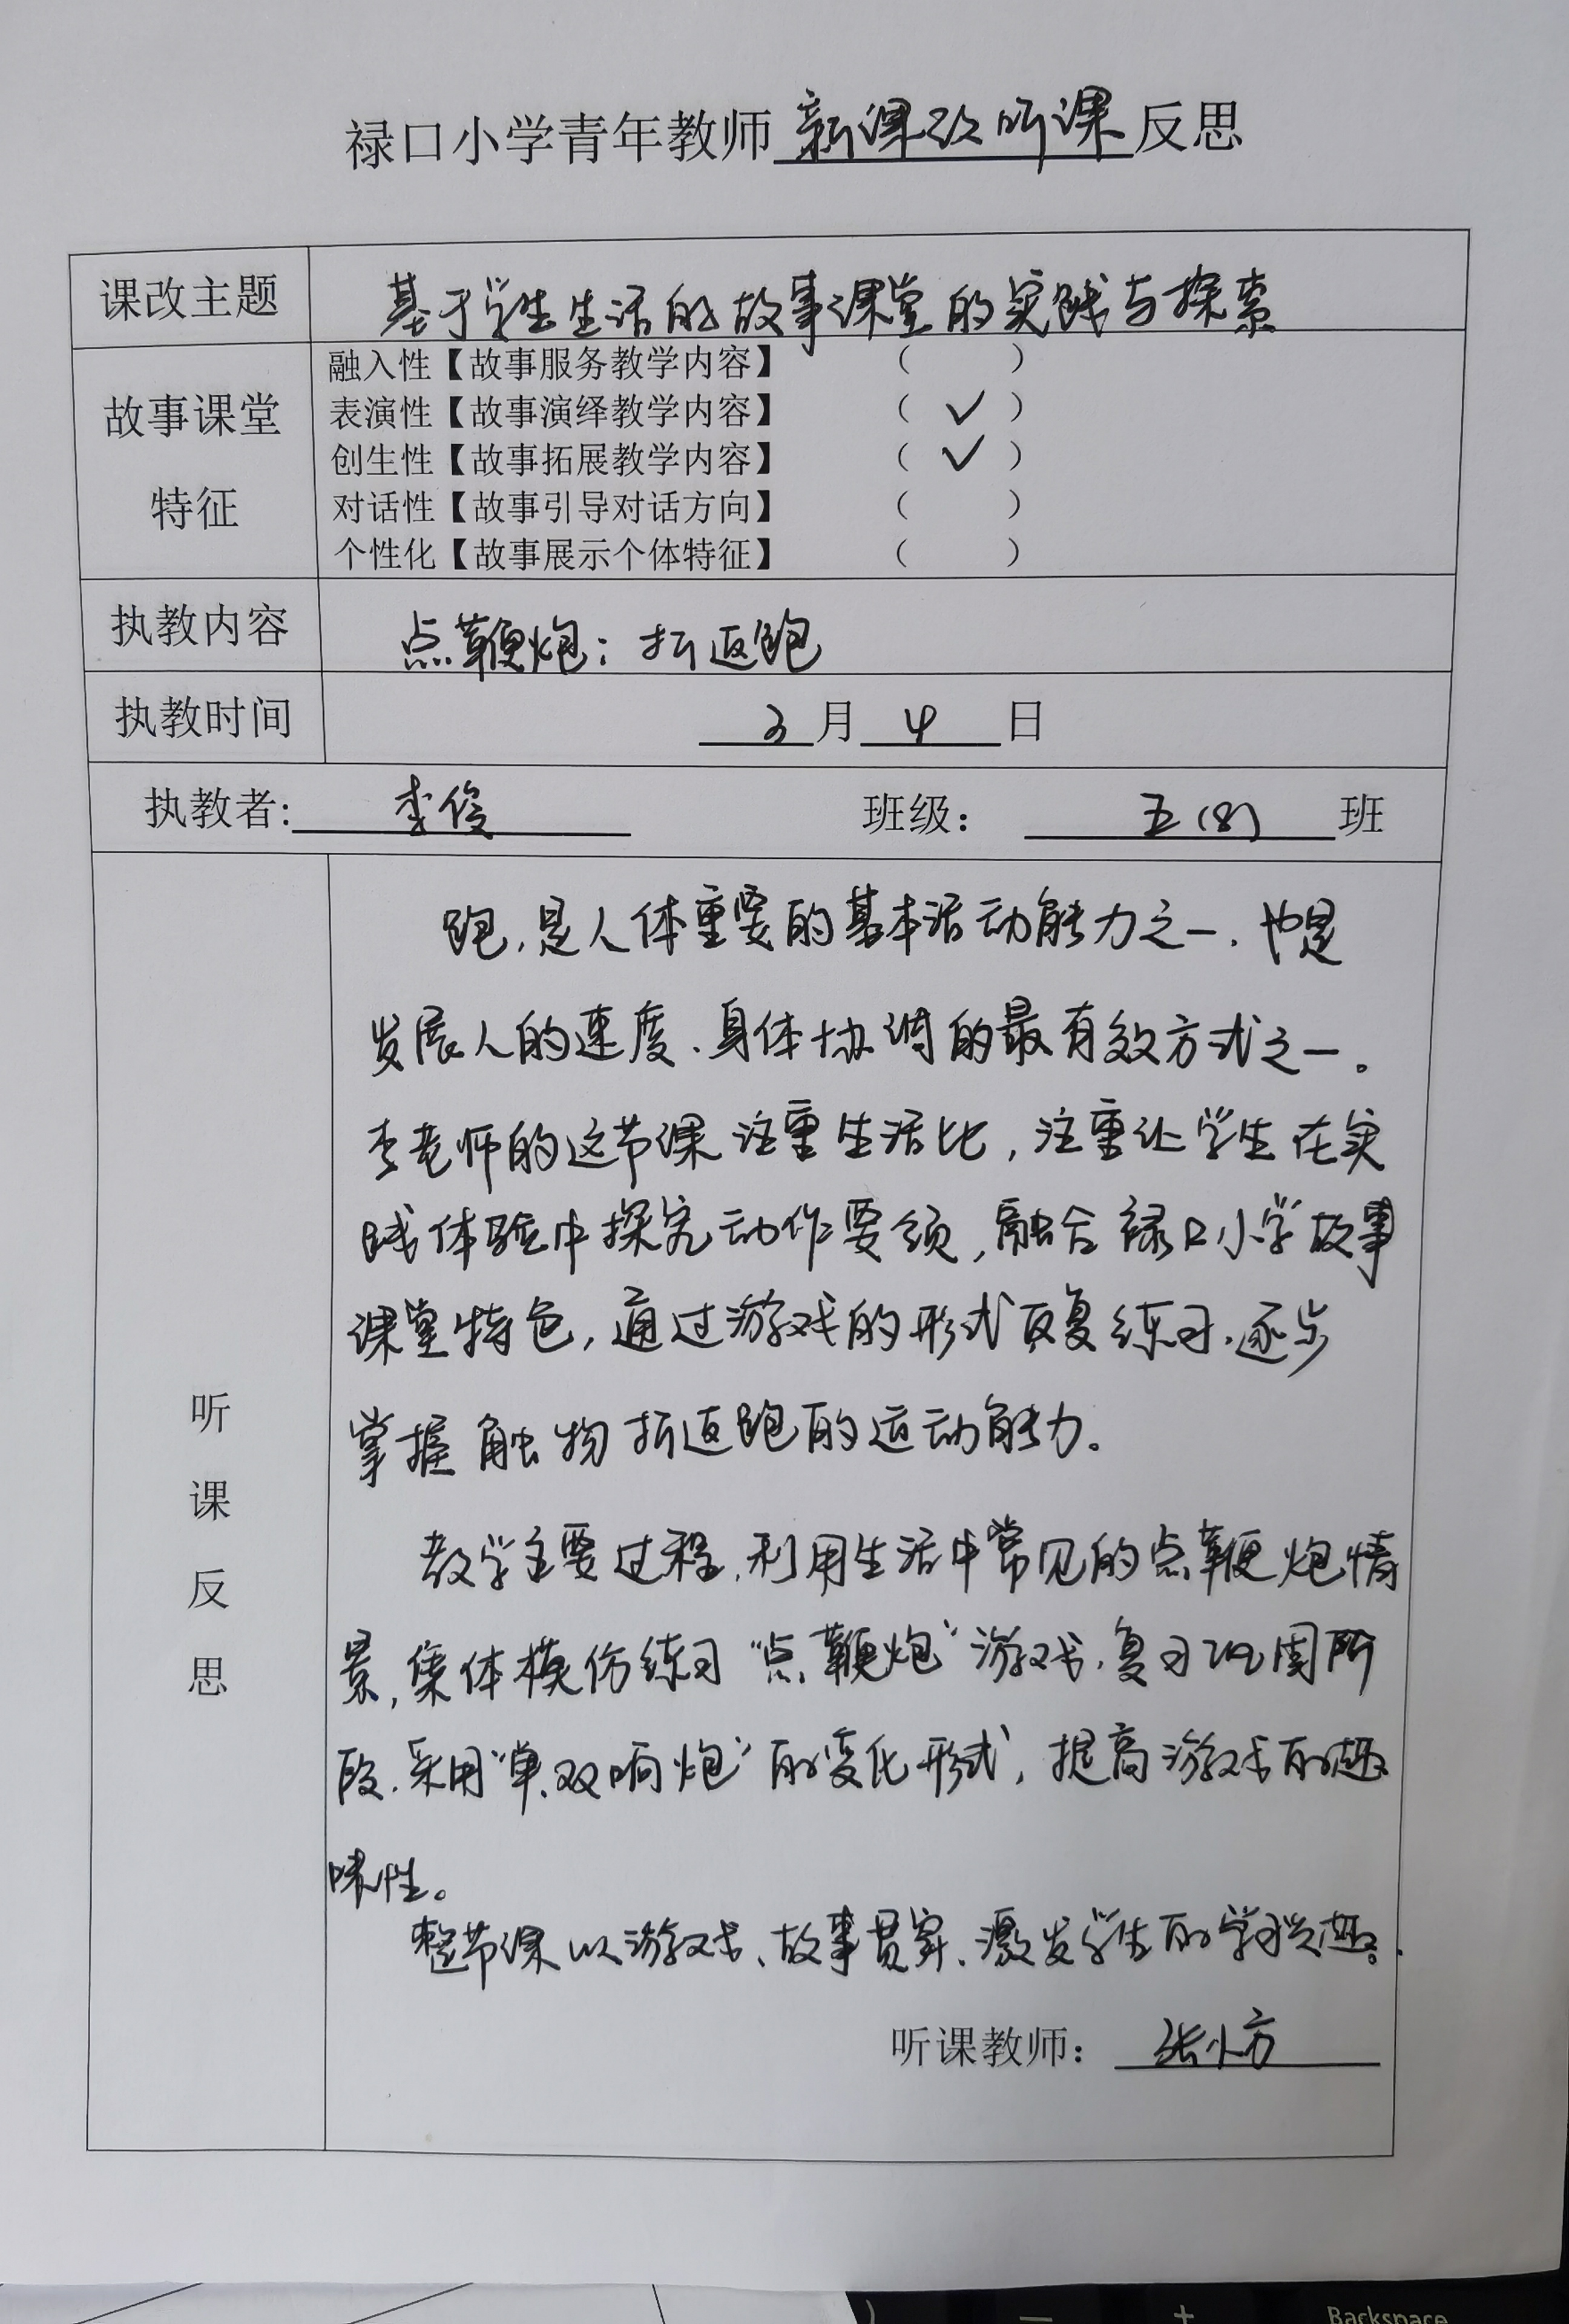 禄口小学青年教师新课改听课反思
课改主题 基于学生生活的故事课堂的实践与探索
故事课堂特征
融入性【故事服务教学内容】 （ ）
表演性【故事演绎教学内容】 （ ✓ ）
创生性【故事拓展教学内容】 （ ✓ ）
对话性【故事引导对话方向】 （ ）
个性化【故事展示个体特征】 （ ）
执教内容 点鞭炮：折返跑
执教时间 月 4 日
执教者: 李俊 班级： 五(8) 班
听课反思
跑,是人体重要的基本活动能力之一,也是
发展人的速度、身体协调的最有效方式之一。
李老师的这节课注重生活化,注重让学生在实
践体验中探究动作要领,融合禄口小学故事
课堂特色,通过游戏的形式反复练习,逐步
掌握触物折返跑的运动能力。
教学主要过程,利用生活中常见的点鞭炮情
景,集体模仿练习“点鞭炮”游戏,复习巩固阶
段,采用“单、双响炮”的变化形式,提高游戏的趣
味性。
整节课以游戏、故事贯穿、激发学生的学习兴趣。
听课教师： 张小方
)
—
+
Backspace